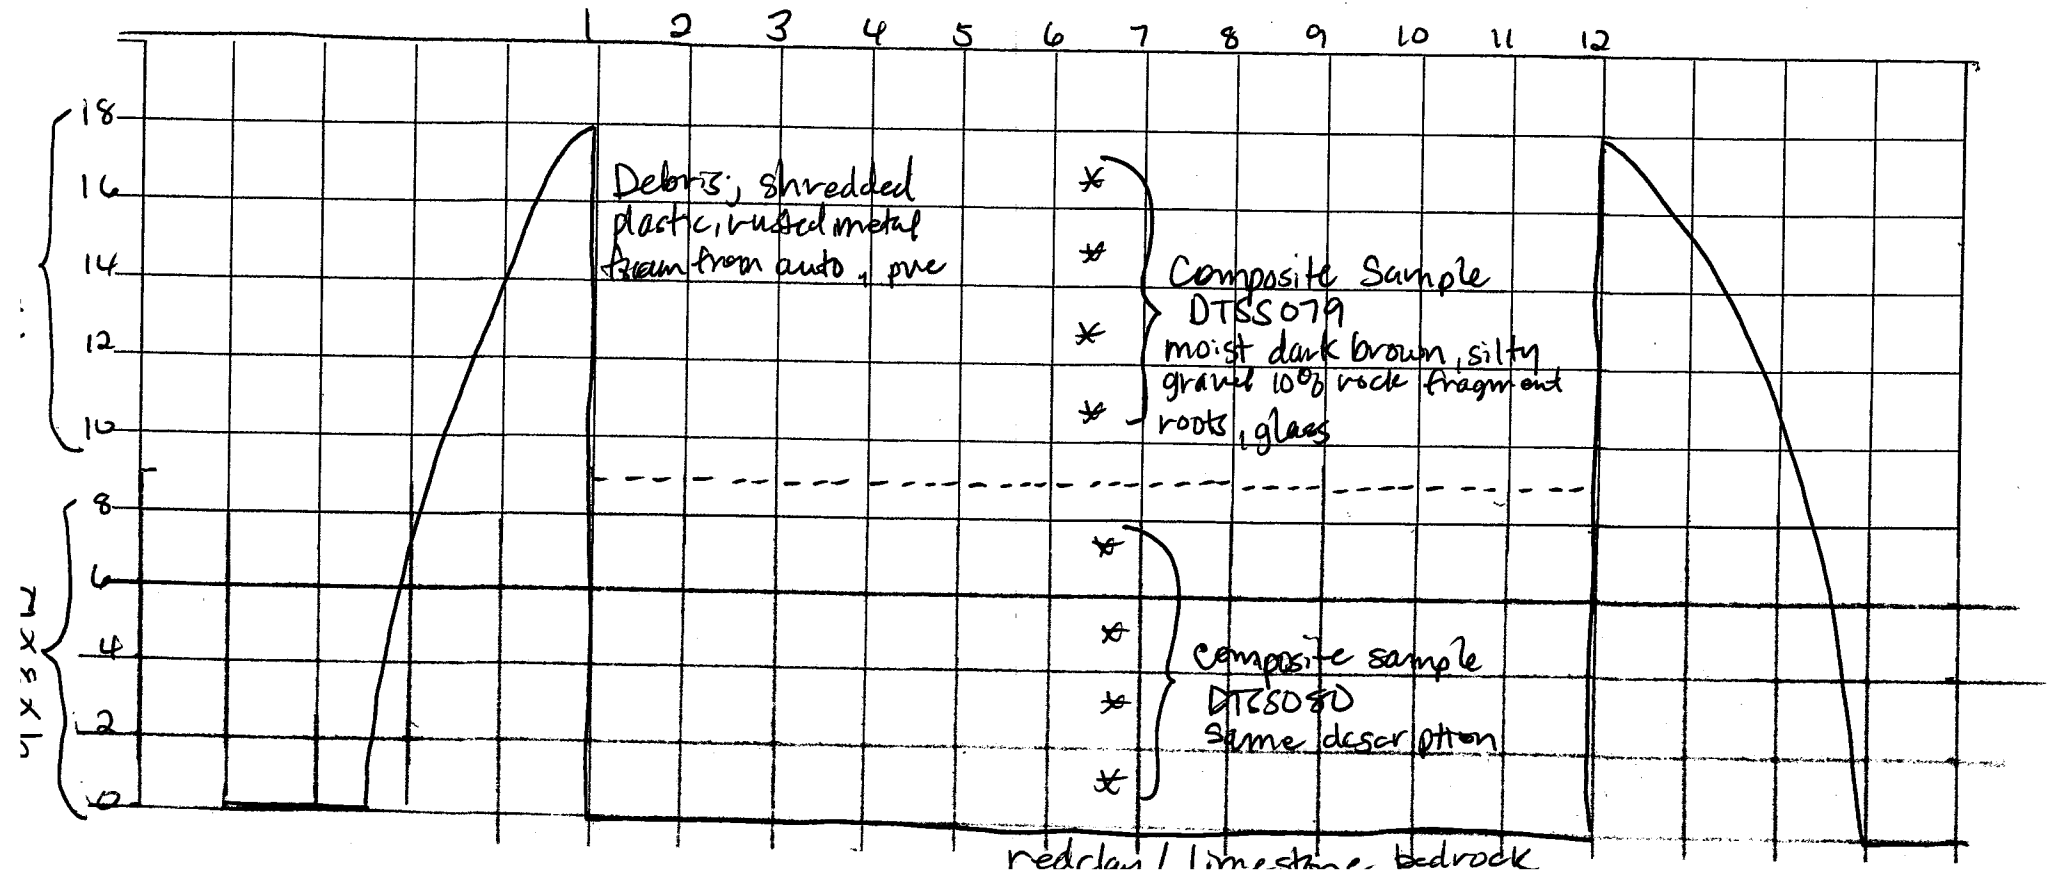 1 2 3 4 5 6 7 8 9 10 11 12
18
16
14
12
10
8
6
4
2
0
Debris; shredded
plastic, rusted metal
from auto, pvc
Composite Sample
DTSS079
moist dark brown, silty
gravel 10% rock fragment
roots, glass
composite sample
DTSS080
Same description
redclay / limestone bedrock